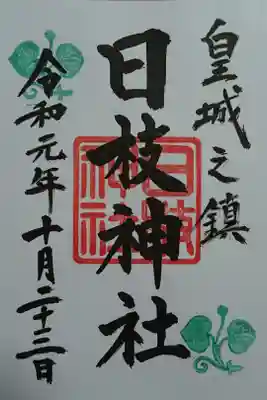 皇城之鎮
日枝神社
日枝神社
令和元年十月二十三日